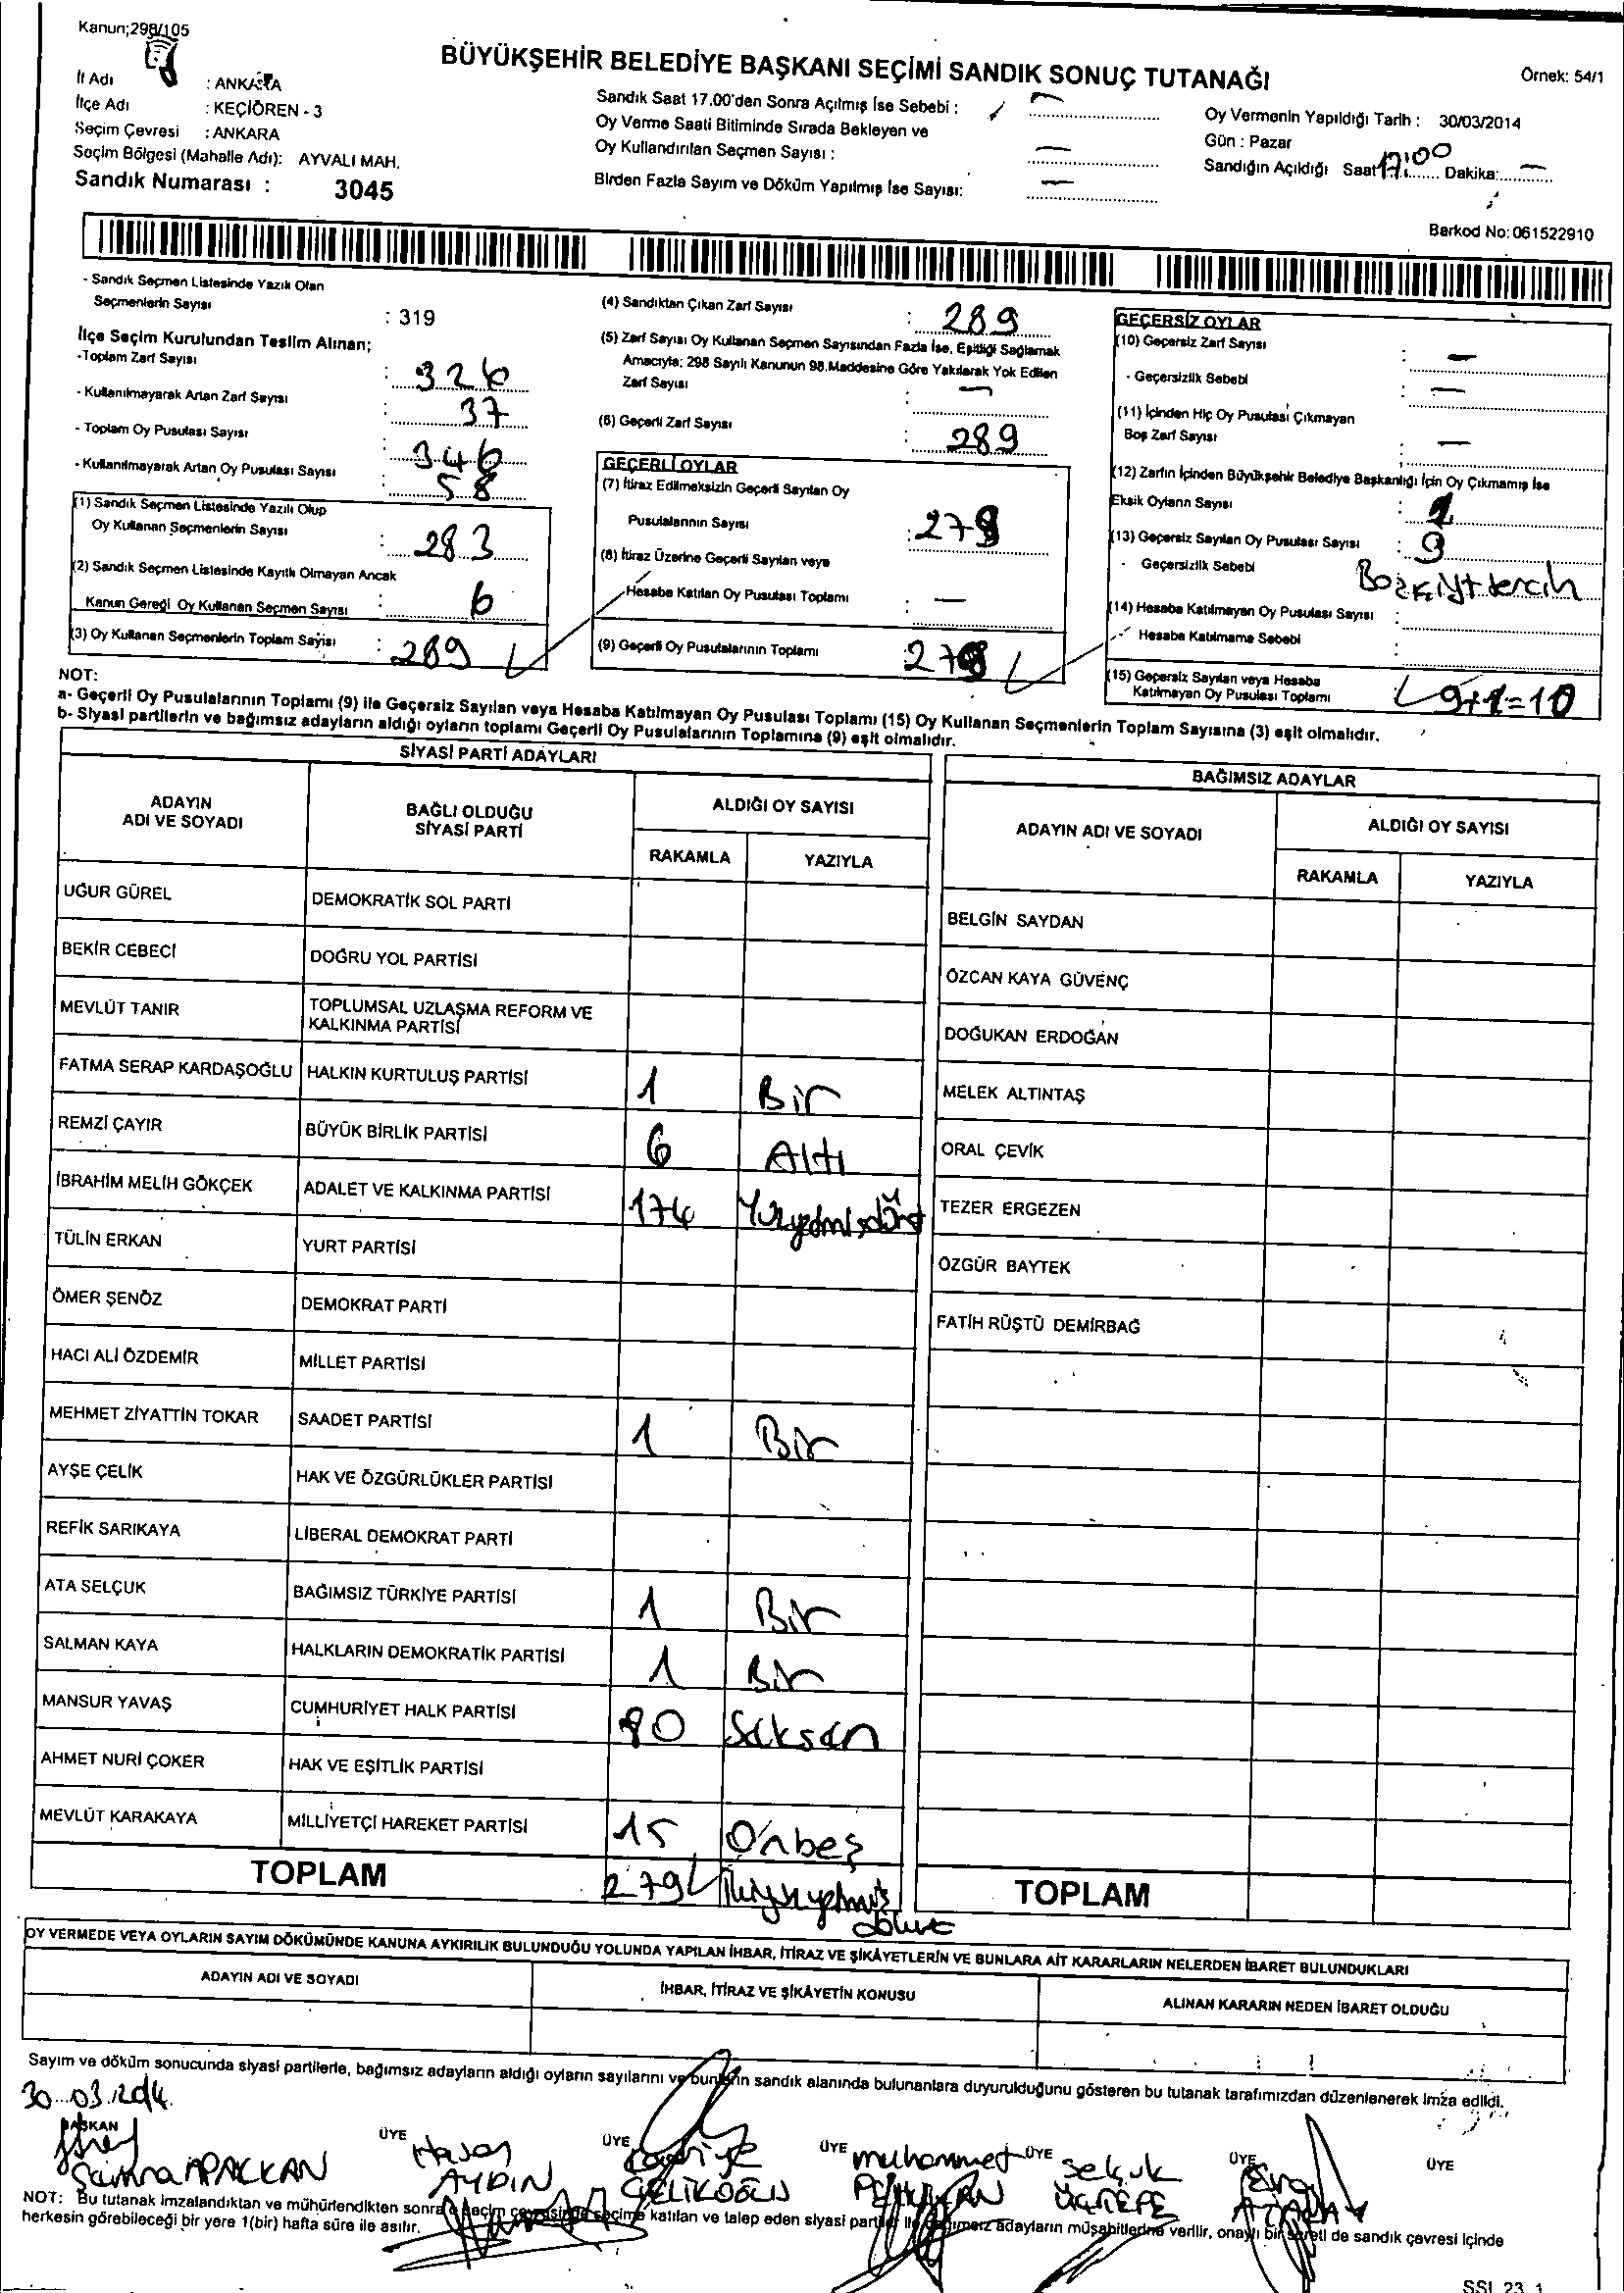 Kanun;298/105
BÜYÜKŞEHİR BELEDİYE BAŞKANI SEÇİMİ SANDIK SONUÇ TUTANAĞI
Örnek: 54/1
İl Adı : ANKARA
İlçe Adı : KEÇİÖREN - 3
Seçim Çevresi : ANKARA
Seçim Bölgesi (Mahalle Adı): AYVALI MAH.
Sandık Numarası : 3045
Sandık Saat 17.00'den Sonra Açılmış İse Sebebi : —
Oy Verme Saati Bitiminde Sırada Bekleyen ve
Oy Kullandırılan Seçmen Sayısı : —
Birden Fazla Sayım ve Döküm Yapılmış İse Sayısı: —
Oy Vermenin Yapıldığı Tarih : 30/03/2014
Gün : Pazar
Sandığın Açıldığı Saat 17:00 Dakika: —
Barkod No: 061522910
- Sandık Seçmen Listesinde Yazılı Olan
Seçmenlerin Sayısı : 319
İlçe Seçim Kurulundan Teslim Alınan;
-Toplam Zarf Sayısı : 326
- Kullanılmayarak Artan Zarf Sayısı : 37
- Toplam Oy Pusulası Sayısı : 346
- Kullanılmayarak Artan Oy Pusulası Sayısı : 58
(1) Sandık Seçmen Listesinde Yazılı Olup
Oy Kullanan Seçmenlerin Sayısı : 283
(2) Sandık Seçmen Listesinde Kayıtlı Olmayan Ancak
Kanun Gereği Oy Kullanan Seçmen Sayısı : 6
(3) Oy Kullanan Seçmenlerin Toplam Sayısı : 289
(4) Sandıktan Çıkan Zarf Sayısı : 289
(5) Zarf Sayısı Oy Kullanan Seçmen Sayısından Fazla İse, Eşitliği Sağlamak
Amacıyla: 298 Sayılı Kanunun 98.Maddesine Göre Yakılarak Yok Edilen
Zarf Sayısı : —
(6) Geçerli Zarf Sayısı : 289
GEÇERLİ OYLAR
(7) İtiraz Edilmeksizin Geçerli Sayılan Oy
Pusulalarının Sayısı :
(8) İtiraz Üzerine Geçerli Sayılan veya
Hesaba Katılan Oy Pusulası Toplamı : —
(9) Geçerli Oy Pusulalarının Toplamı :
GEÇERSİZ OYLAR
(10) Geçersiz Zarf Sayısı : —
- Geçersizlik Sebebi : —
(11) İçinden Hiç Oy Pusulası Çıkmayan
Boş Zarf Sayısı : —
(12) Zarfın İçinden Büyükşehir Belediye Başkanlığı İçin Oy Çıkmamış İse
Eksik Oyların Sayısı :
(13) Geçersiz Sayılan Oy Pusulası Sayısı : 9
- Geçersizlik Sebebi
(14) Hesaba Katılmayan Oy Pusulası Sayısı :
Hesaba Katılmama Sebebi :
(15) Geçersiz Sayılan veya Hesaba
Katılmayan Oy Pusulası Toplamı 9+1=10
NOT:
a- Geçerli Oy Pusulalarının Toplamı (9) ile Geçersiz Sayılan veya Hesaba Katılmayan Oy Pusulası Toplamı (15) Oy Kullanan Seçmenlerin Toplam Sayısına (3) eşit olmalıdır.
b- Siyasi partilerin ve bağımsız adayların aldığı oyların toplamı Geçerli Oy Pusulalarının Toplamına (9) eşit olmalıdır.
SİYASİ PARTİ ADAYLARI
ADAYIN ADI VE SOYADI
BAĞLI OLDUĞU SİYASİ PARTİ
ALDIĞI OY SAYISI
RAKAMLA YAZIYLA
UĞUR GÜREL DEMOKRATİK SOL PARTİ
BEKİR CEBECİ DOĞRU YOL PARTİSİ
MEVLÜT TANIR TOPLUMSAL UZLAŞMA REFORM VE
KALKINMA PARTİSİ
FATMA SERAP KARDAŞOĞLU HALKIN KURTULUŞ PARTİSİ 1 Bir
REMZİ ÇAYIR BÜYÜK BİRLİK PARTİSİ 6 Altı
İBRAHİM MELİH GÖKÇEK ADALET VE KALKINMA PARTİSİ 174 Yüzyetmişdört
TÜLİN ERKAN YURT PARTİSİ
ÖMER ŞENÖZ DEMOKRAT PARTİ
HACI ALİ ÖZDEMİR MİLLET PARTİSİ
MEHMET ZİYATTİN TOKAR SAADET PARTİSİ 1 Bir
AYŞE ÇELİK HAK VE ÖZGÜRLÜKLER PARTİSİ
REFİK SARIKAYA LİBERAL DEMOKRAT PARTİ
ATA SELÇUK BAĞIMSIZ TÜRKİYE PARTİSİ 1 Bir
SALMAN KAYA HALKLARIN DEMOKRATİK PARTİSİ 1 Bir
MANSUR YAVAŞ CUMHURİYET HALK PARTİSİ 80 Seksen
AHMET NURİ ÇOKER HAK VE EŞİTLİK PARTİSİ
MEVLÜT KARAKAYA MİLLİYETÇİ HAREKET PARTİSİ 15 Onbeş
TOPLAM 279
BAĞIMSIZ ADAYLAR
ADAYIN ADI VE SOYADI
ALDIĞI OY SAYISI
RAKAMLA YAZIYLA
BELGİN SAYDAN
ÖZCAN KAYA GÜVENÇ
DOĞUKAN ERDOĞAN
MELEK ALTINTAŞ
ORAL ÇEVİK
TEZER ERGEZEN
ÖZGÜR BAYTEK
FATİH RÜŞTÜ DEMİRBAĞ
TOPLAM
OY VERMEDE VEYA OYLARIN SAYIM DÖKÜMÜNDE KANUNA AYKIRILIK BULUNDUĞU YOLUNDA YAPILAN İHBAR, İTİRAZ VE ŞİKÂYETLERİN VE BUNLARA AİT KARARLARIN NELERDEN İBARET BULUNDUKLARI
ADAYIN ADI VE SOYADI İHBAR, İTİRAZ VE ŞİKÂYETİN KONUSU ALINAN KARARIN NEDEN İBARET OLDUĞU
Sayım ve döküm sonucunda siyasi partilerle, bağımsız adayların aldığı oyların sayılarını ve bunların sandık alanında bulunanlara duyurulduğunu gösteren bu tutanak tarafımızdan düzenlenerek imza edildi.
30.03.2014
BAŞKAN ÜYE ÜYE ÜYE ÜYE ÜYE ÜYE
Hasan muhammet Selçuk
APAKKAN AYDIN ÇELİKOĞLU ÜÇTEPE
NOT: Bu tutanak imzalandıktan ve mühürlendikten sonra seçim çevresinde seçime katılan ve talep eden siyasi partiler ile bağımsız adayların müşahitlerine verilir, onaylı bir sureti de sandık çevresi içinde
herkesin görebileceği bir yere 1(bir) hafta süre ile asılır.
SSI 23 1